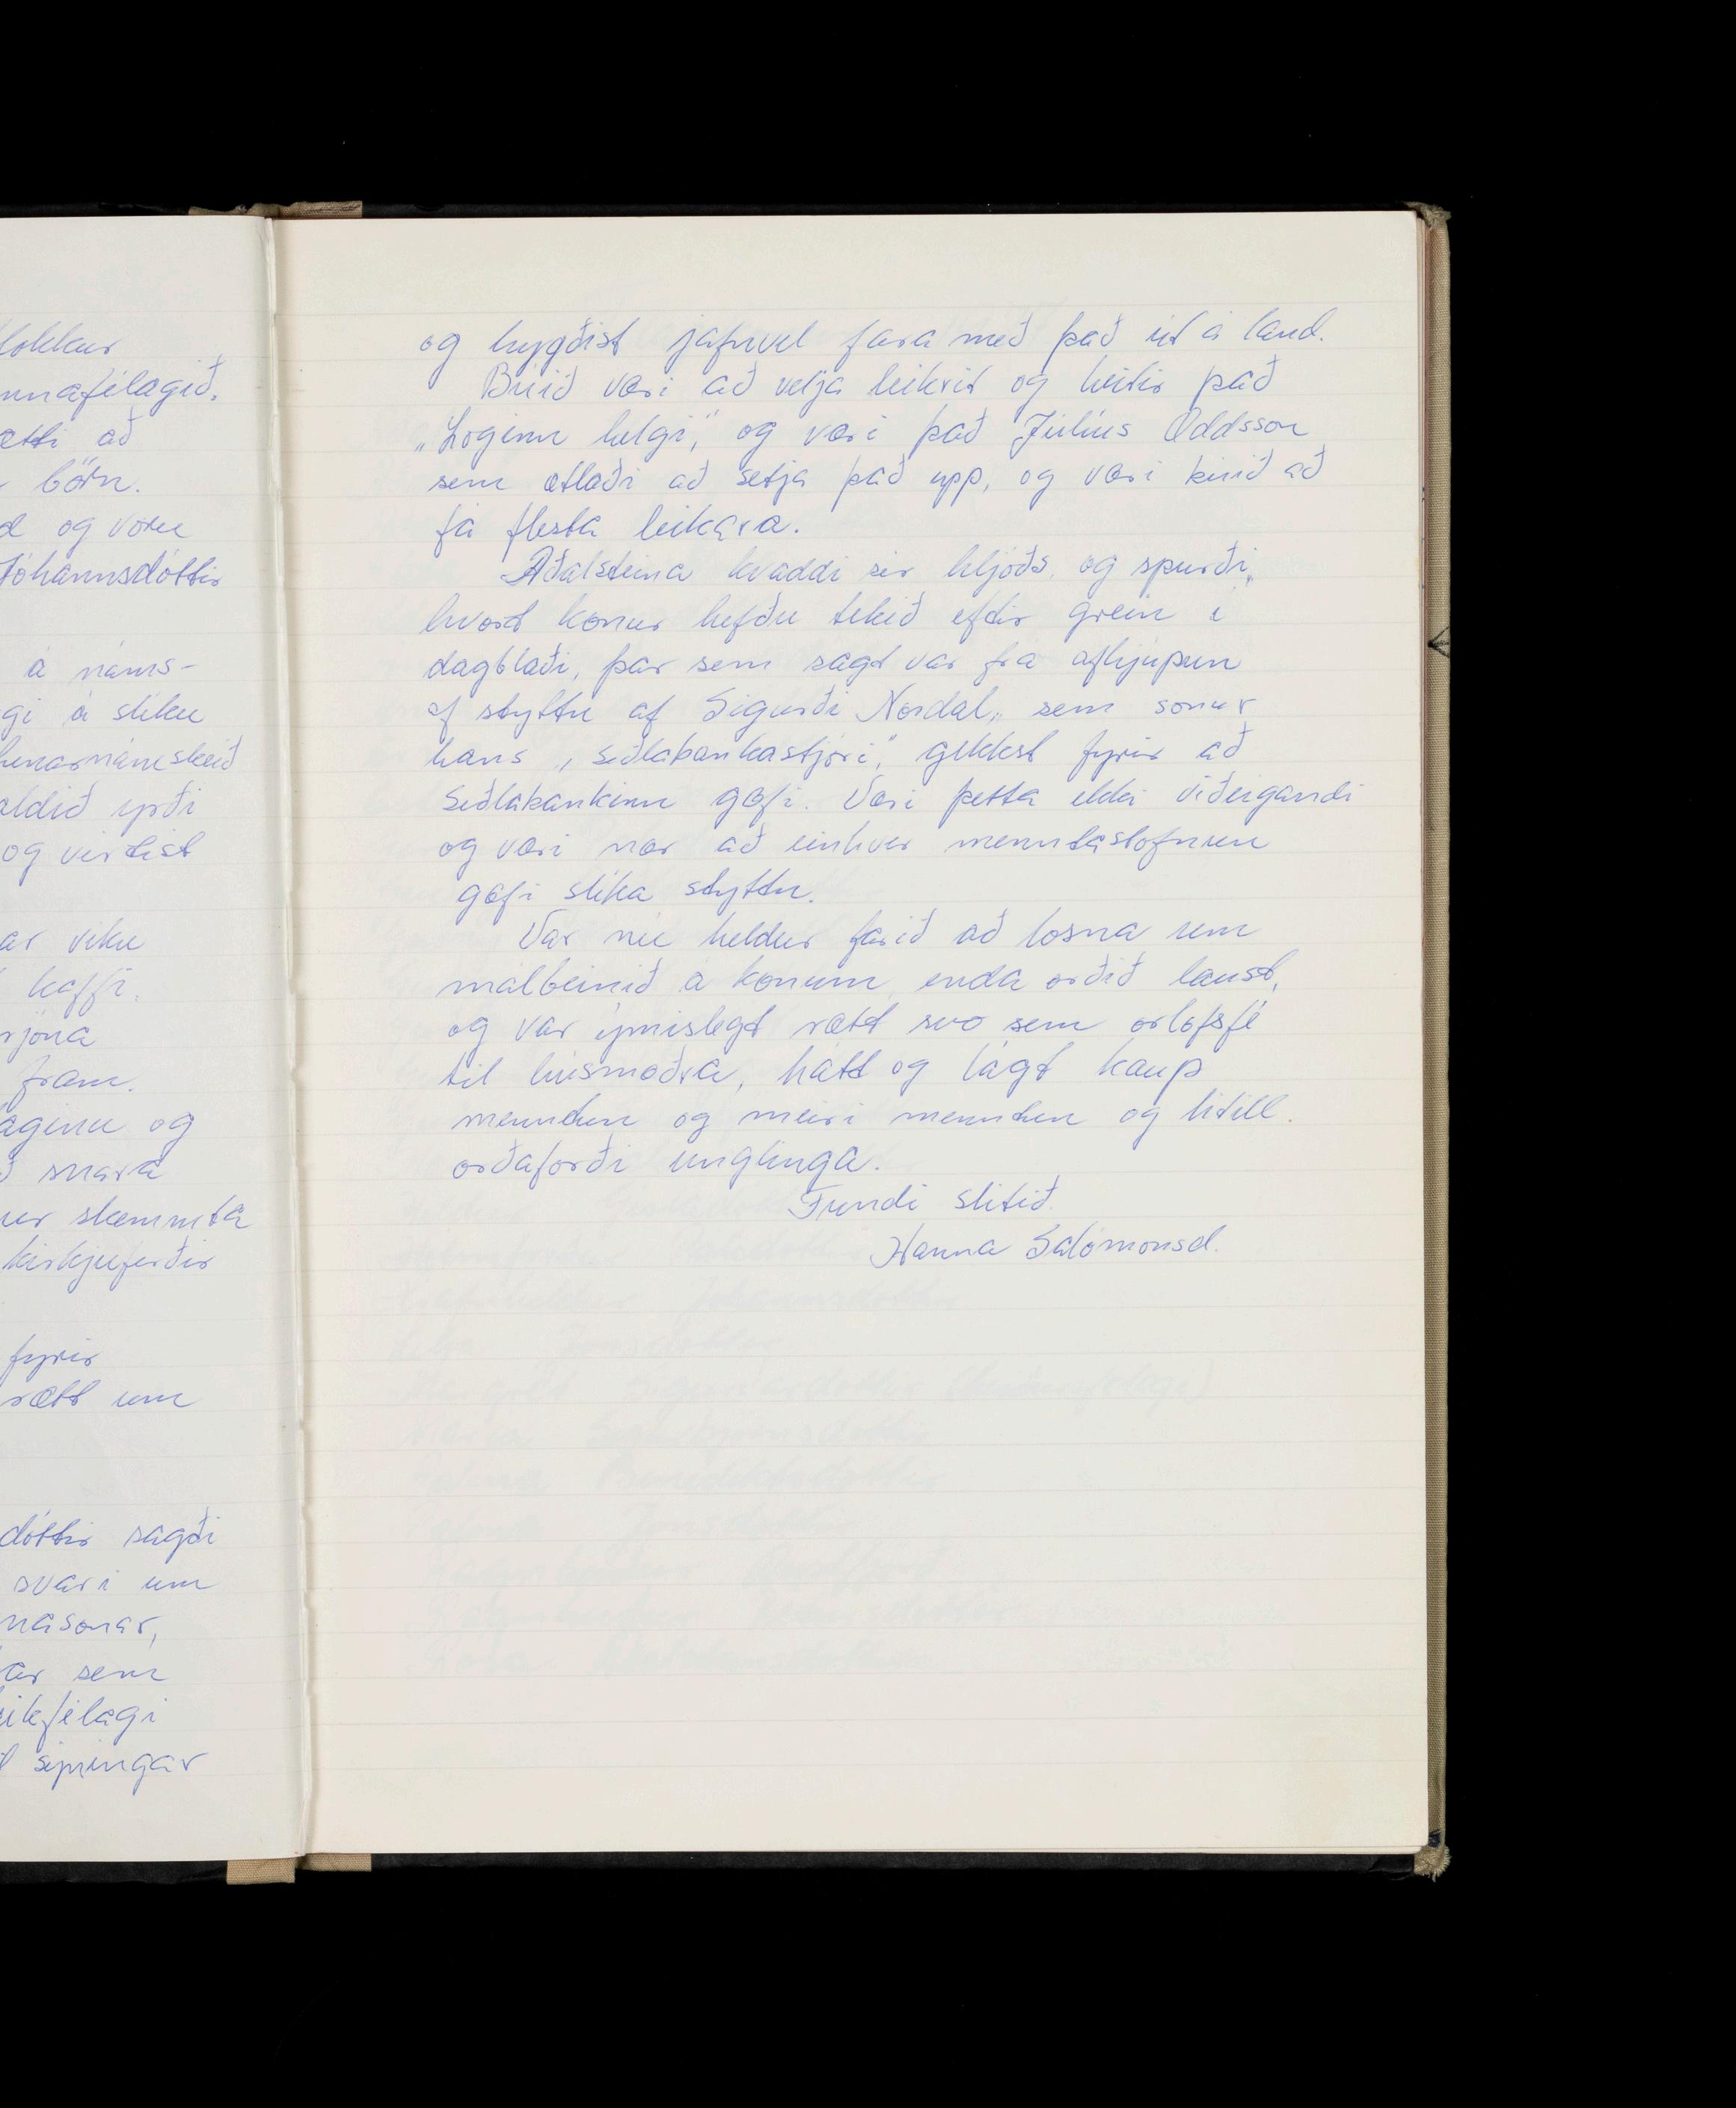 lokkur
nnafélagið.
ætti að
börn.
d og voru
Jóhannsdóttir
á náms-
gi á slíku
narnámskeið
aldið yrði
og virtist
ar viku
kaffi.
rjóna
fram.
aginu og
ð svara
ur skemmta
kirkjuferðir
fyrir
rætt um
dóttir sagði
svari um
nasonar,
ar sem
eikfélagi
l sýningar
og hygðist jafnvel fara með það út á land.
Búið væri að velja leikrit og heitir það
„Loginn helgi," og væri það Júlíus Oddsson
sem ætlaði að setja það upp, og væri búið að
fá flesta leikara.
Aðalsteina kvaddi sér hljóðs, og spurði,
hvort konur hefðu tekið eftir grein í
dagblaði, þar sem sagt var frá afhjúpun
af styttu af Sigurði Nordal, sem sonur
hans, „seðlabankastjóri," gekkst fyrir að
Seðlabankinn gæfi. Væri þetta ekki viðeigandi
og væri nær að einhver menntastofnun
gæfi slíka styttu.
Var nú heldur farið að losna um
málbeinið á konum, enda orðið laust,
og var ýmislegt rætt svo sem orlofsfé
til húsmæðra, hátt og lágt kaup
menntun og meiri menntun og lítill
orðaforði unglinga.
Fundi slitið.
Hanna Salómonsd.